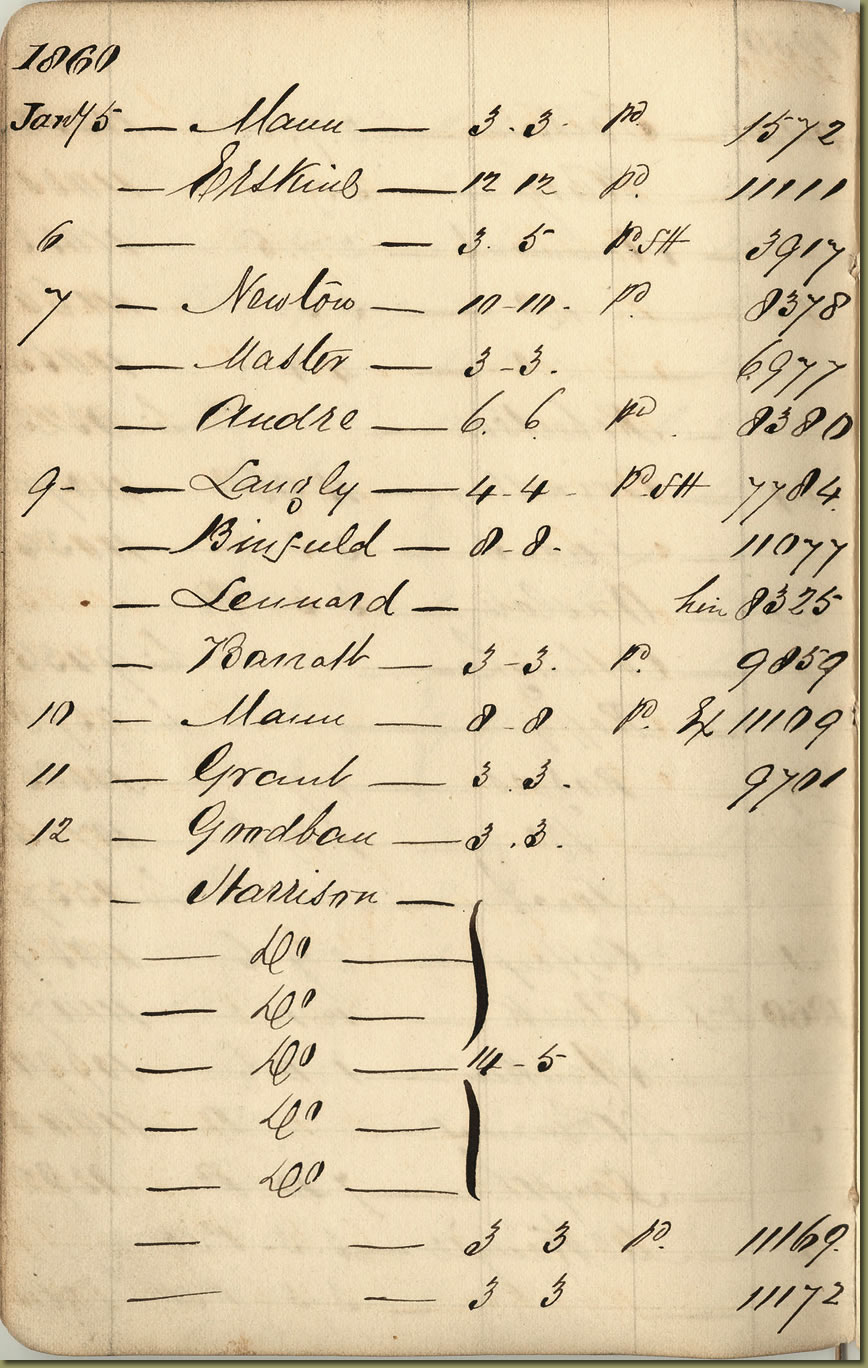 1860
Jany 5 — Mann — 3 . 3 . pd 1572
— Erskine — 12 12 pd. 11111
6 — — 3 . 5 pd. SH 3917
7 — Newton — 10 - 10 . pd 8378
— Master — 3 - 3 . 6977
— Andre — 6 . 6 . pd . 8380
9 - — Langly — 4 - 4 - pd. SH 7784
— Bingfuld — 8 - 8 - 11077
— Lennard — 8325
— Barratt — 3 - 3 . pd. 9859
10 — Mann — 8 - 8 pd. Ex 11109
11 — Grant — 3 . 3 . 9701
12 — Goodban — 3 . 3 .
— Harrison —
— Do —
— Do —
— Do — 14 - 5
— Do —
— Do —
— — 3 3 pd. 11169.
— — 3 3 11172